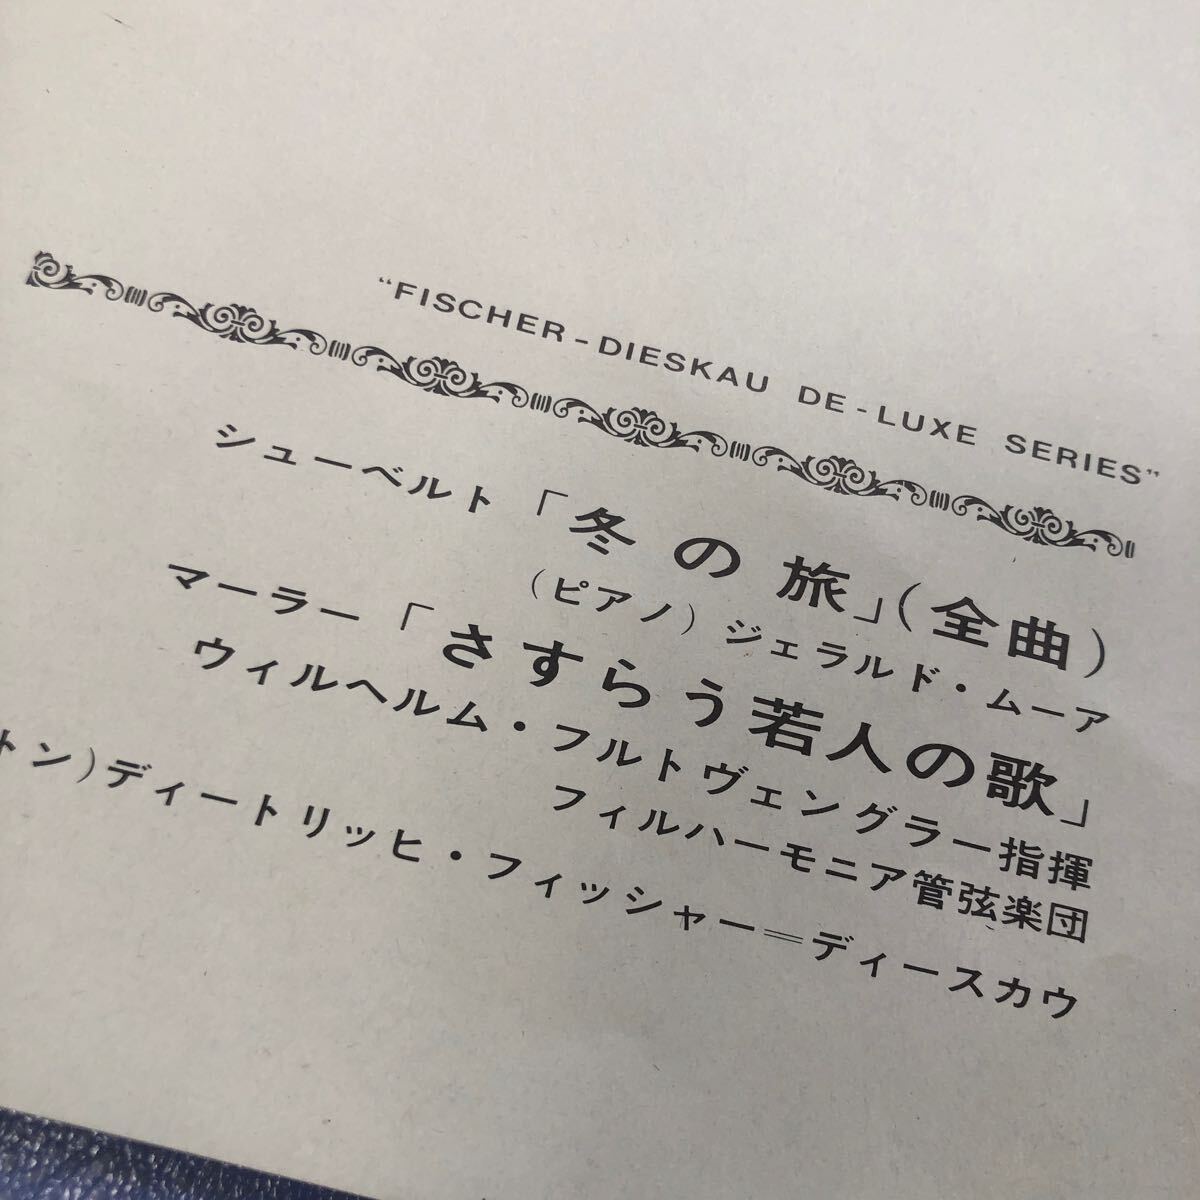 “FISCHER-DIESKAU DE-LUXE SERIES”
シューベルト「冬の旅」(全曲)
(ピアノ)ジェラルド・ムーア
マーラー「さすらう若人の歌」
ウィルヘルム・フルトヴェングラー指揮
フィルハーモニア管弦楽団
トン)ディートリッヒ・フィッシャー＝ディースカウ